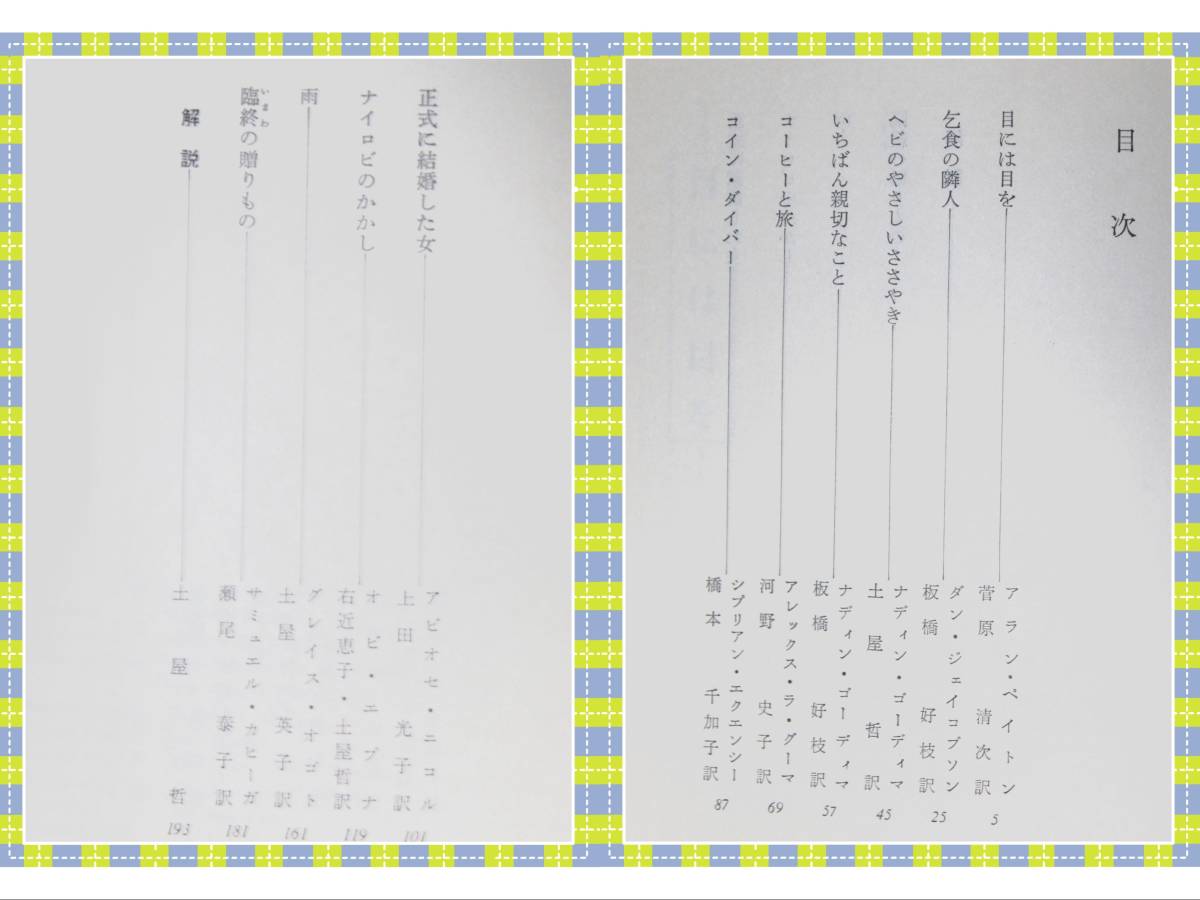 目次
目には目を
アラン・ペイトン
菅原清次訳
5
乞食の隣人
ダン・ジェイコブソン
板橋好枝訳
25
ヘビのやさしいささやき
ナディン・ゴーディマ
土屋哲訳
45
いちばん親切なこと
ナディン・ゴーディマ
板橋好枝訳
57
コーヒーと旅
アレックス・ラ・グーマ
河野史子訳
69
コイン・ダイバー
シプリアン・エクエンシー
橋本千加子訳
87
正式に結婚した女
アビオセ・ニコル
上田光子訳
101
ナイロビのかかし
オビ・エブナ
右近恵子・土屋哲訳
119
雨
グレイス・オゴト
土屋英子訳
161
臨終の贈りもの
いまわ
サミュエル・カヒーガ
瀬尾泰子訳
181
解説
土屋哲
193